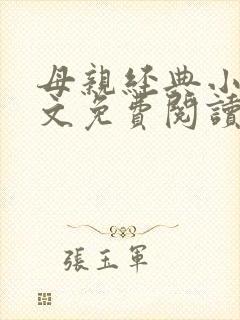 母親經典小
文免費閱讀
張玉軍